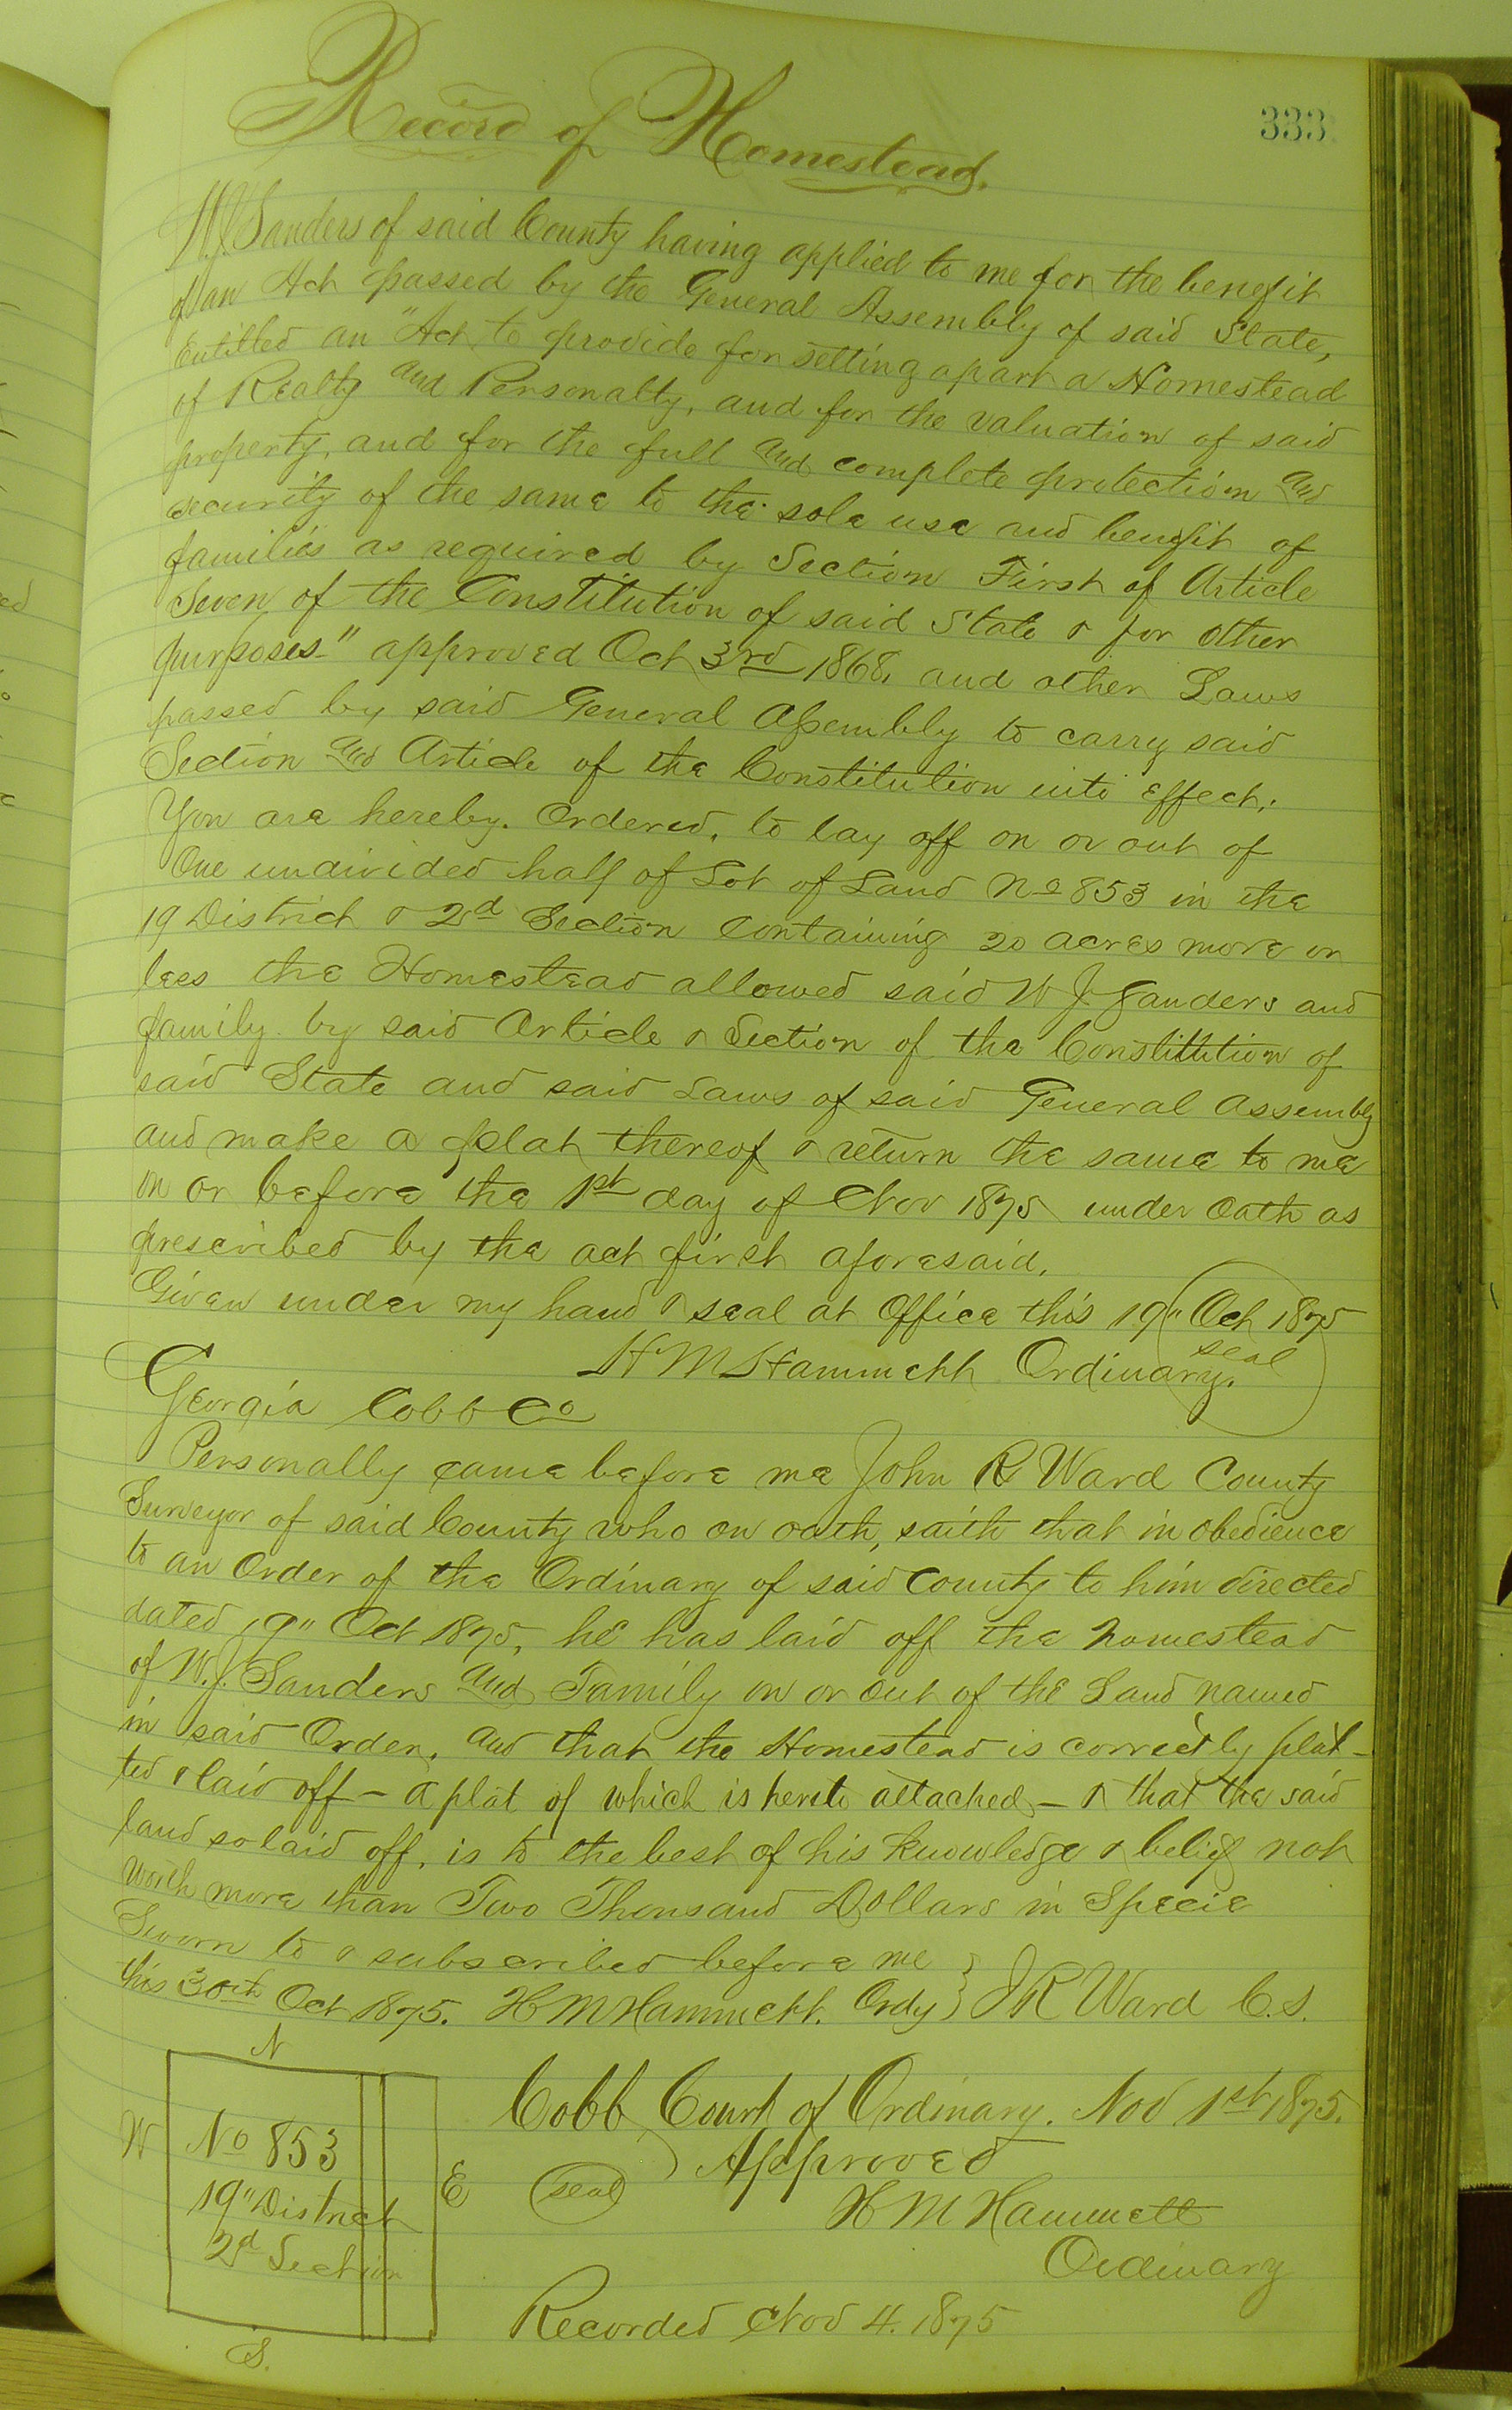 333
Record of Homestead.
W.J. Sanders of said County having applied to me for the benefit
of an Act passed by the General Assembly of said State,
Entitled an "Act to provide for setting apart a Homestead
of Realty and Personalty, and for the valuation of said
property, and for the full and complete protection and
security of the same to the sole use and benefit of
families as required by Section First of Article
Seven of the Constitution of said State & for other
purposes" approved Oct 3rd 1868, and other Laws
passed by said General Assembly to carry said
Section and Article of the Constitution into effect,
You are hereby Ordered, to lay off on or out of
One undivided half of Lot of Land No 853 in the
19 District & 2d Section Containing 20 acres more or
less the Homestead allowed said W J Sanders and
family by said Article & Section of the Constitution of
said State and said Laws of said General Assembly
and make a plat thereof & return the same to me
on or before the 1st day of Nov 1875 under oath as
prescribed by the act first aforesaid.
Given under my hand & seal at Office this 19" Oct 1875
H M Hammett Ordinary. seal
Georgia Cobb Co
Personally came before me John R Ward County
Surveyor of said County who on oath, saith that in obedience
to an Order of the Ordinary of said County to him directed
dated 19" Oct 1875, he has laid off the homestead
of W.J. Sanders and Family on or out of the Land named
in said Order, and that the Homestead is correctly plat-
ted & laid off - a plat of which is hereto attached - & that the said
land so laid off, is to the best of his knowledge & belief not
worth more than Two Thousand Dollars in Specie
Sworn to & subscribed before me
this 30th Oct 1875. H M Hammett. Ordy } J R Ward C.S.
N
Cobb Court of Ordinary. Nov 1st 1875.
W No 853 E
(seal) Approved
19" District
H M Hammett
2d Section
Ordinary
Recorded Nov 4. 1875
S.